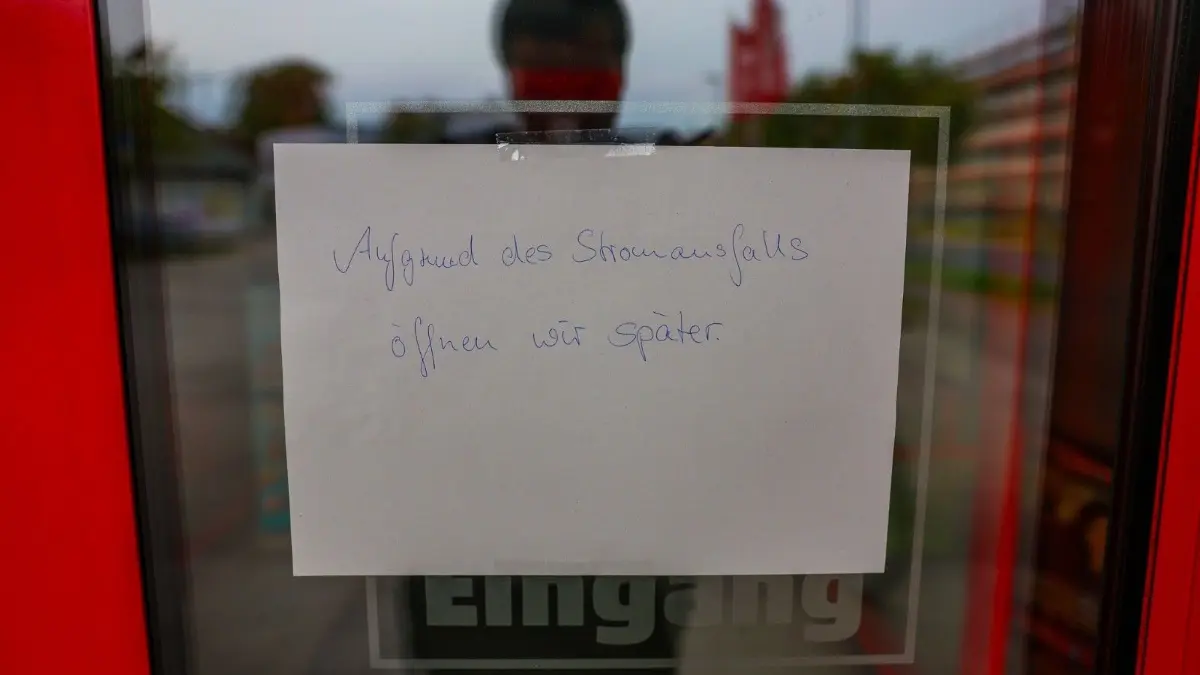 Aufgrund des Stromausfalls
öffnen wir später.
Eingang